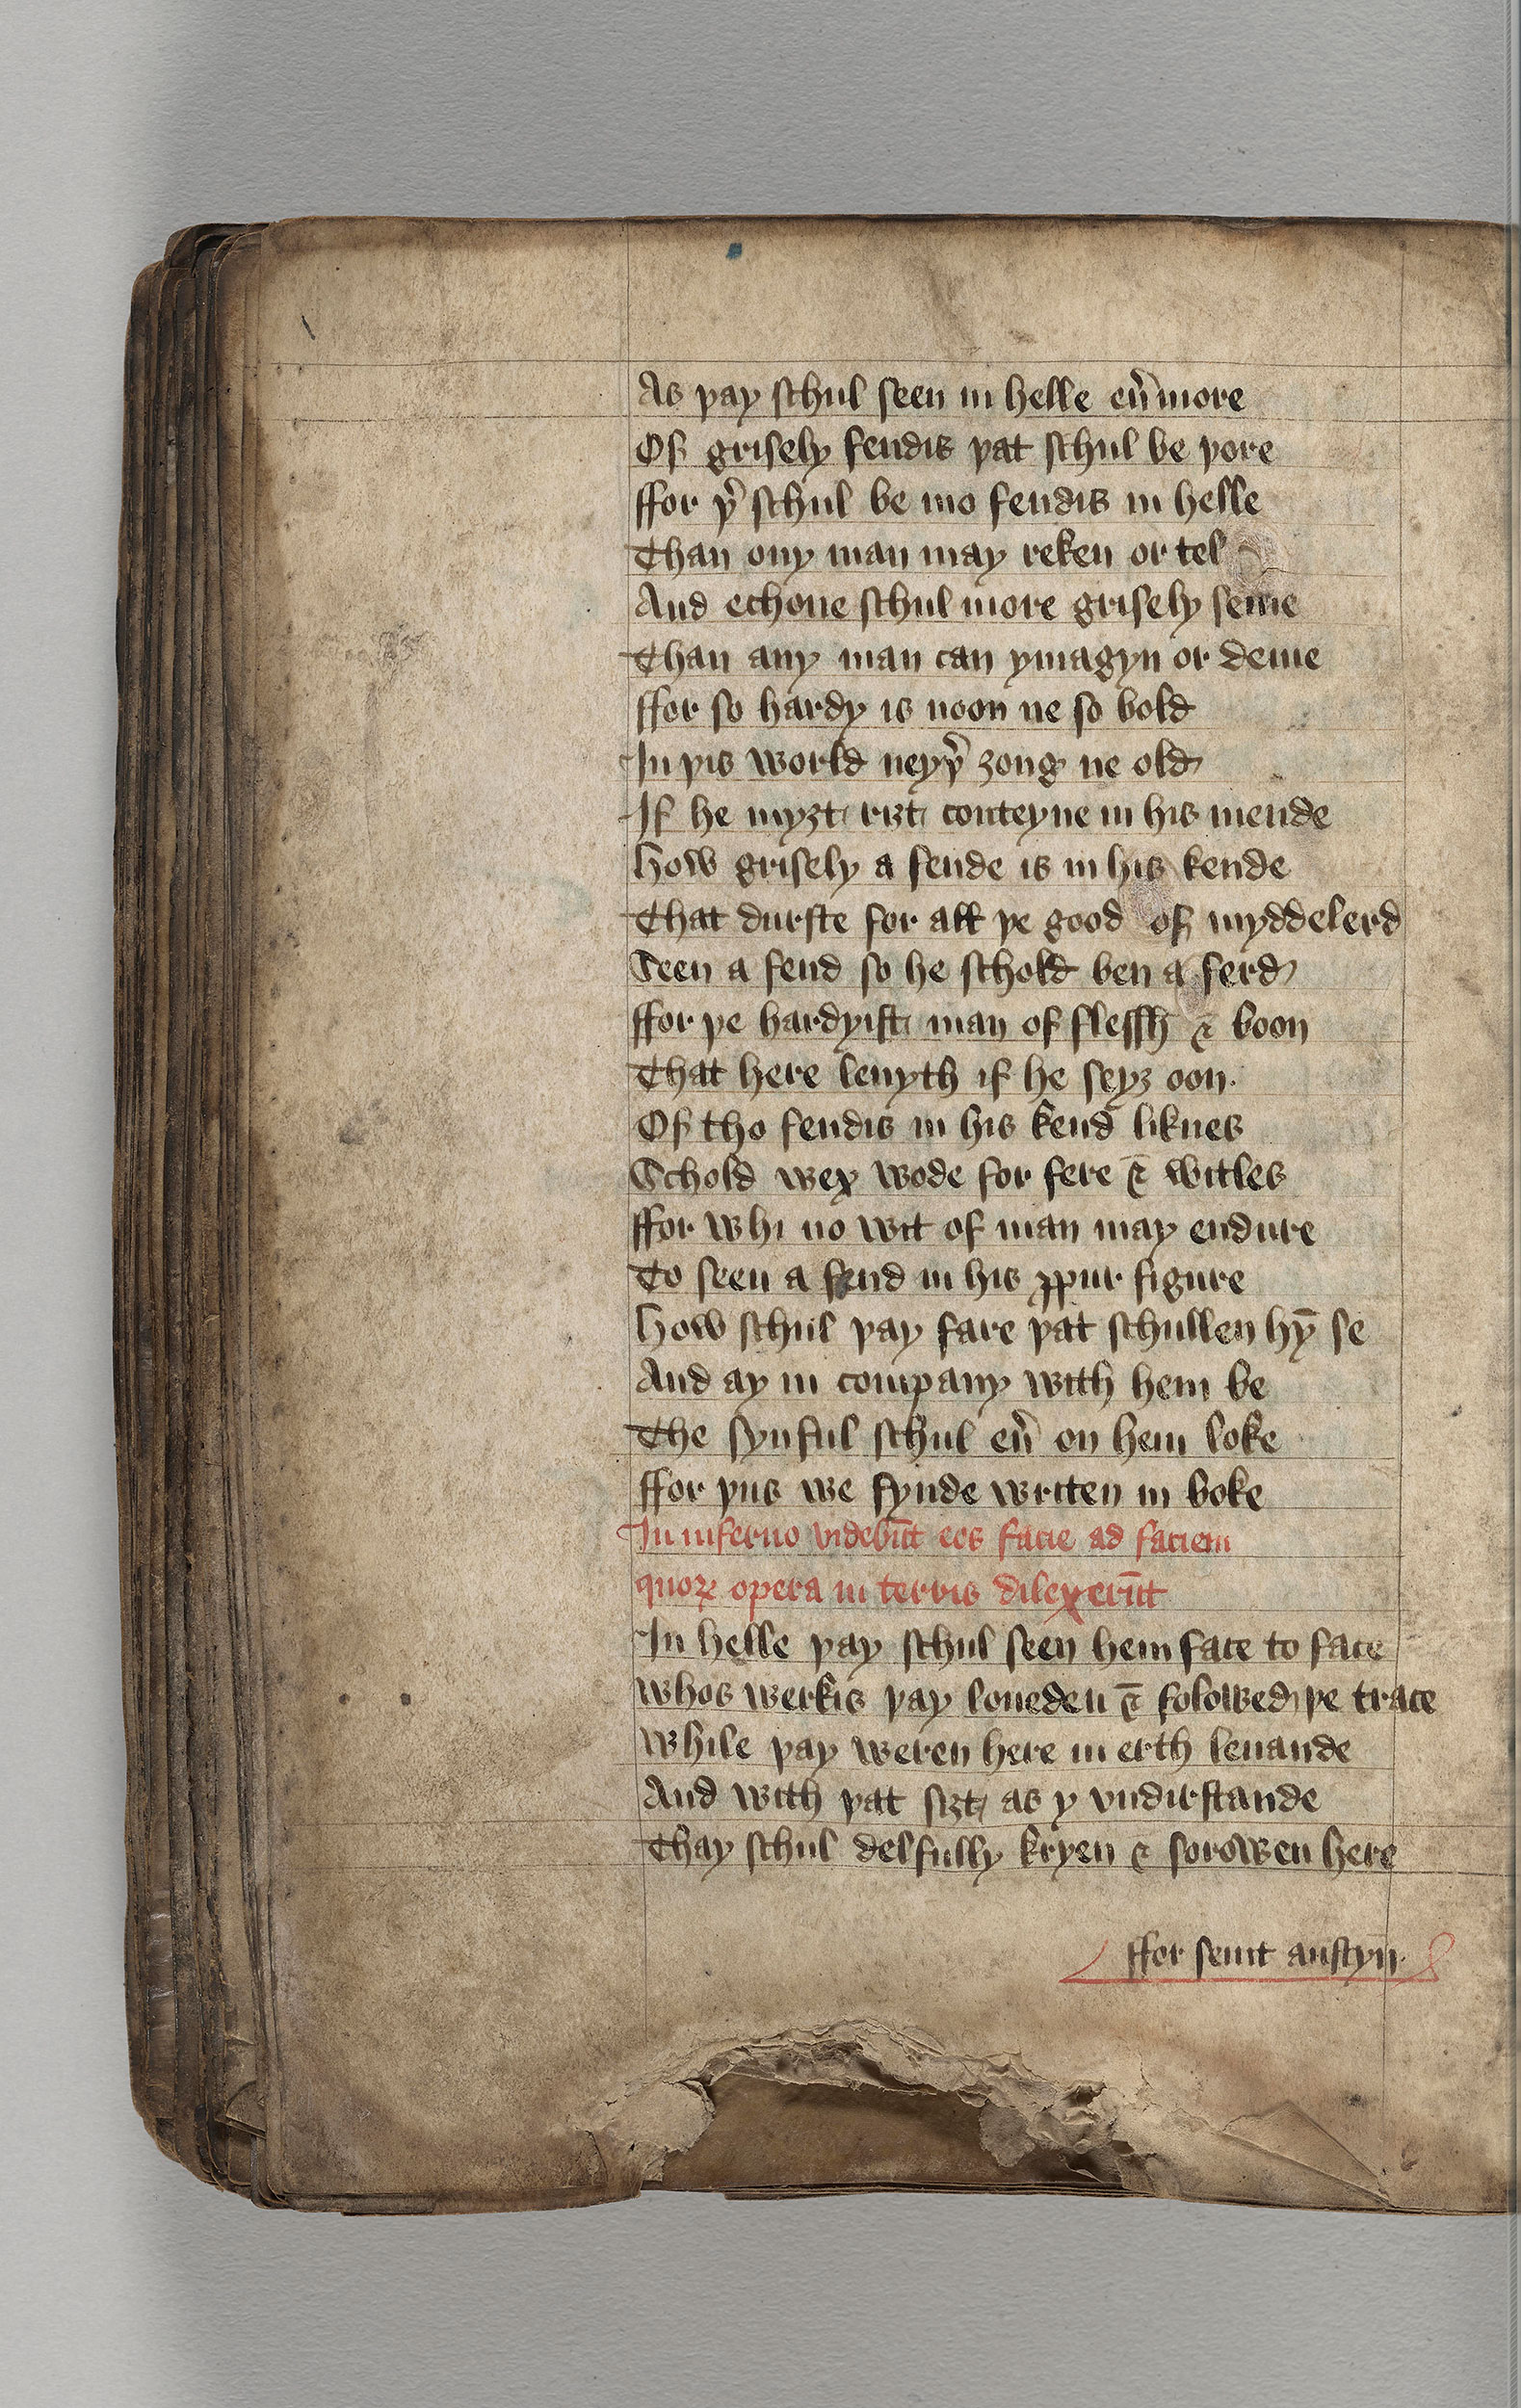 As þay schul seen in helle eu̾more
Of grisely fendis þat schul be þore
ffor þ̾ schul be mo fendis in helle
Than ony man may reken or tel
And echone schul more grisely seme
Than any man can ymagyn or deme
ffor so hardy is noon ne so bold
In þis world neyþ̾ ȝong ne old
If he myȝt riȝt conteyne in his mende
How grisely a fende is in his kende
That durste for all þe good of myddelerd
Seen a fend so he schold ben a ferd
ffor þe hardyist man of flessh & boon
That here leuyth if he seyȝ oon.
Of tho fendis in his kend liknes
Schold wex wode for fere & witles
ffor whi no wit of man may endure
To seen a fend in his ꝓpur figure
How schul þay fare þat schullen hȳ se
And ay in company with hem be
The synful schul eu̾ on hem loke
ffor þus we fynde writen in boke
In inferno videbūt eos facie ad faciem
quoꝝ opera in terris dilexerūt
In helle þay schul seen hem face to face
Whos werkis þay loueden & folowed þe trace
While þay weren here in erth leuande
And with þat siȝt as y vndirstande
Thay schul delfully kryen & sorowen here
ffor seint austyn.